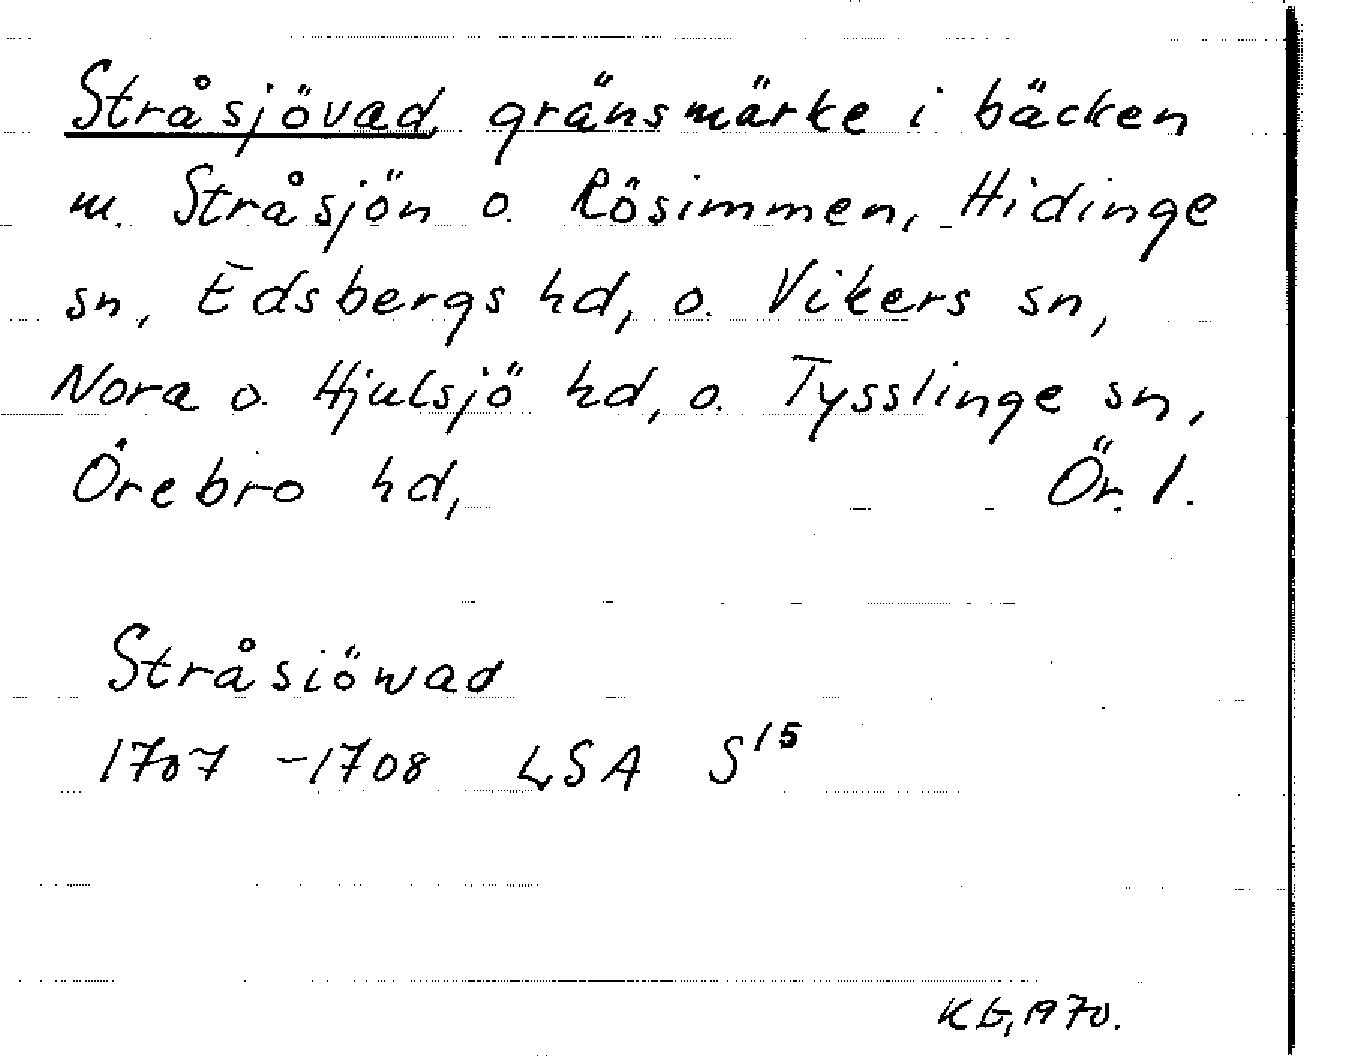 Stråsjövad, gränsmärke i bäcken
m. Stråsjön o. Rösimmen, Hidinge
sn, Edsbergs hd, o. Vikers sn,
Nora o. Hjulsjö hd, o. Tysslinge sn,
Örebro hd, Ör. l.
Stråsiöwad
1707 -1708 LSA S15
KG, 1970.